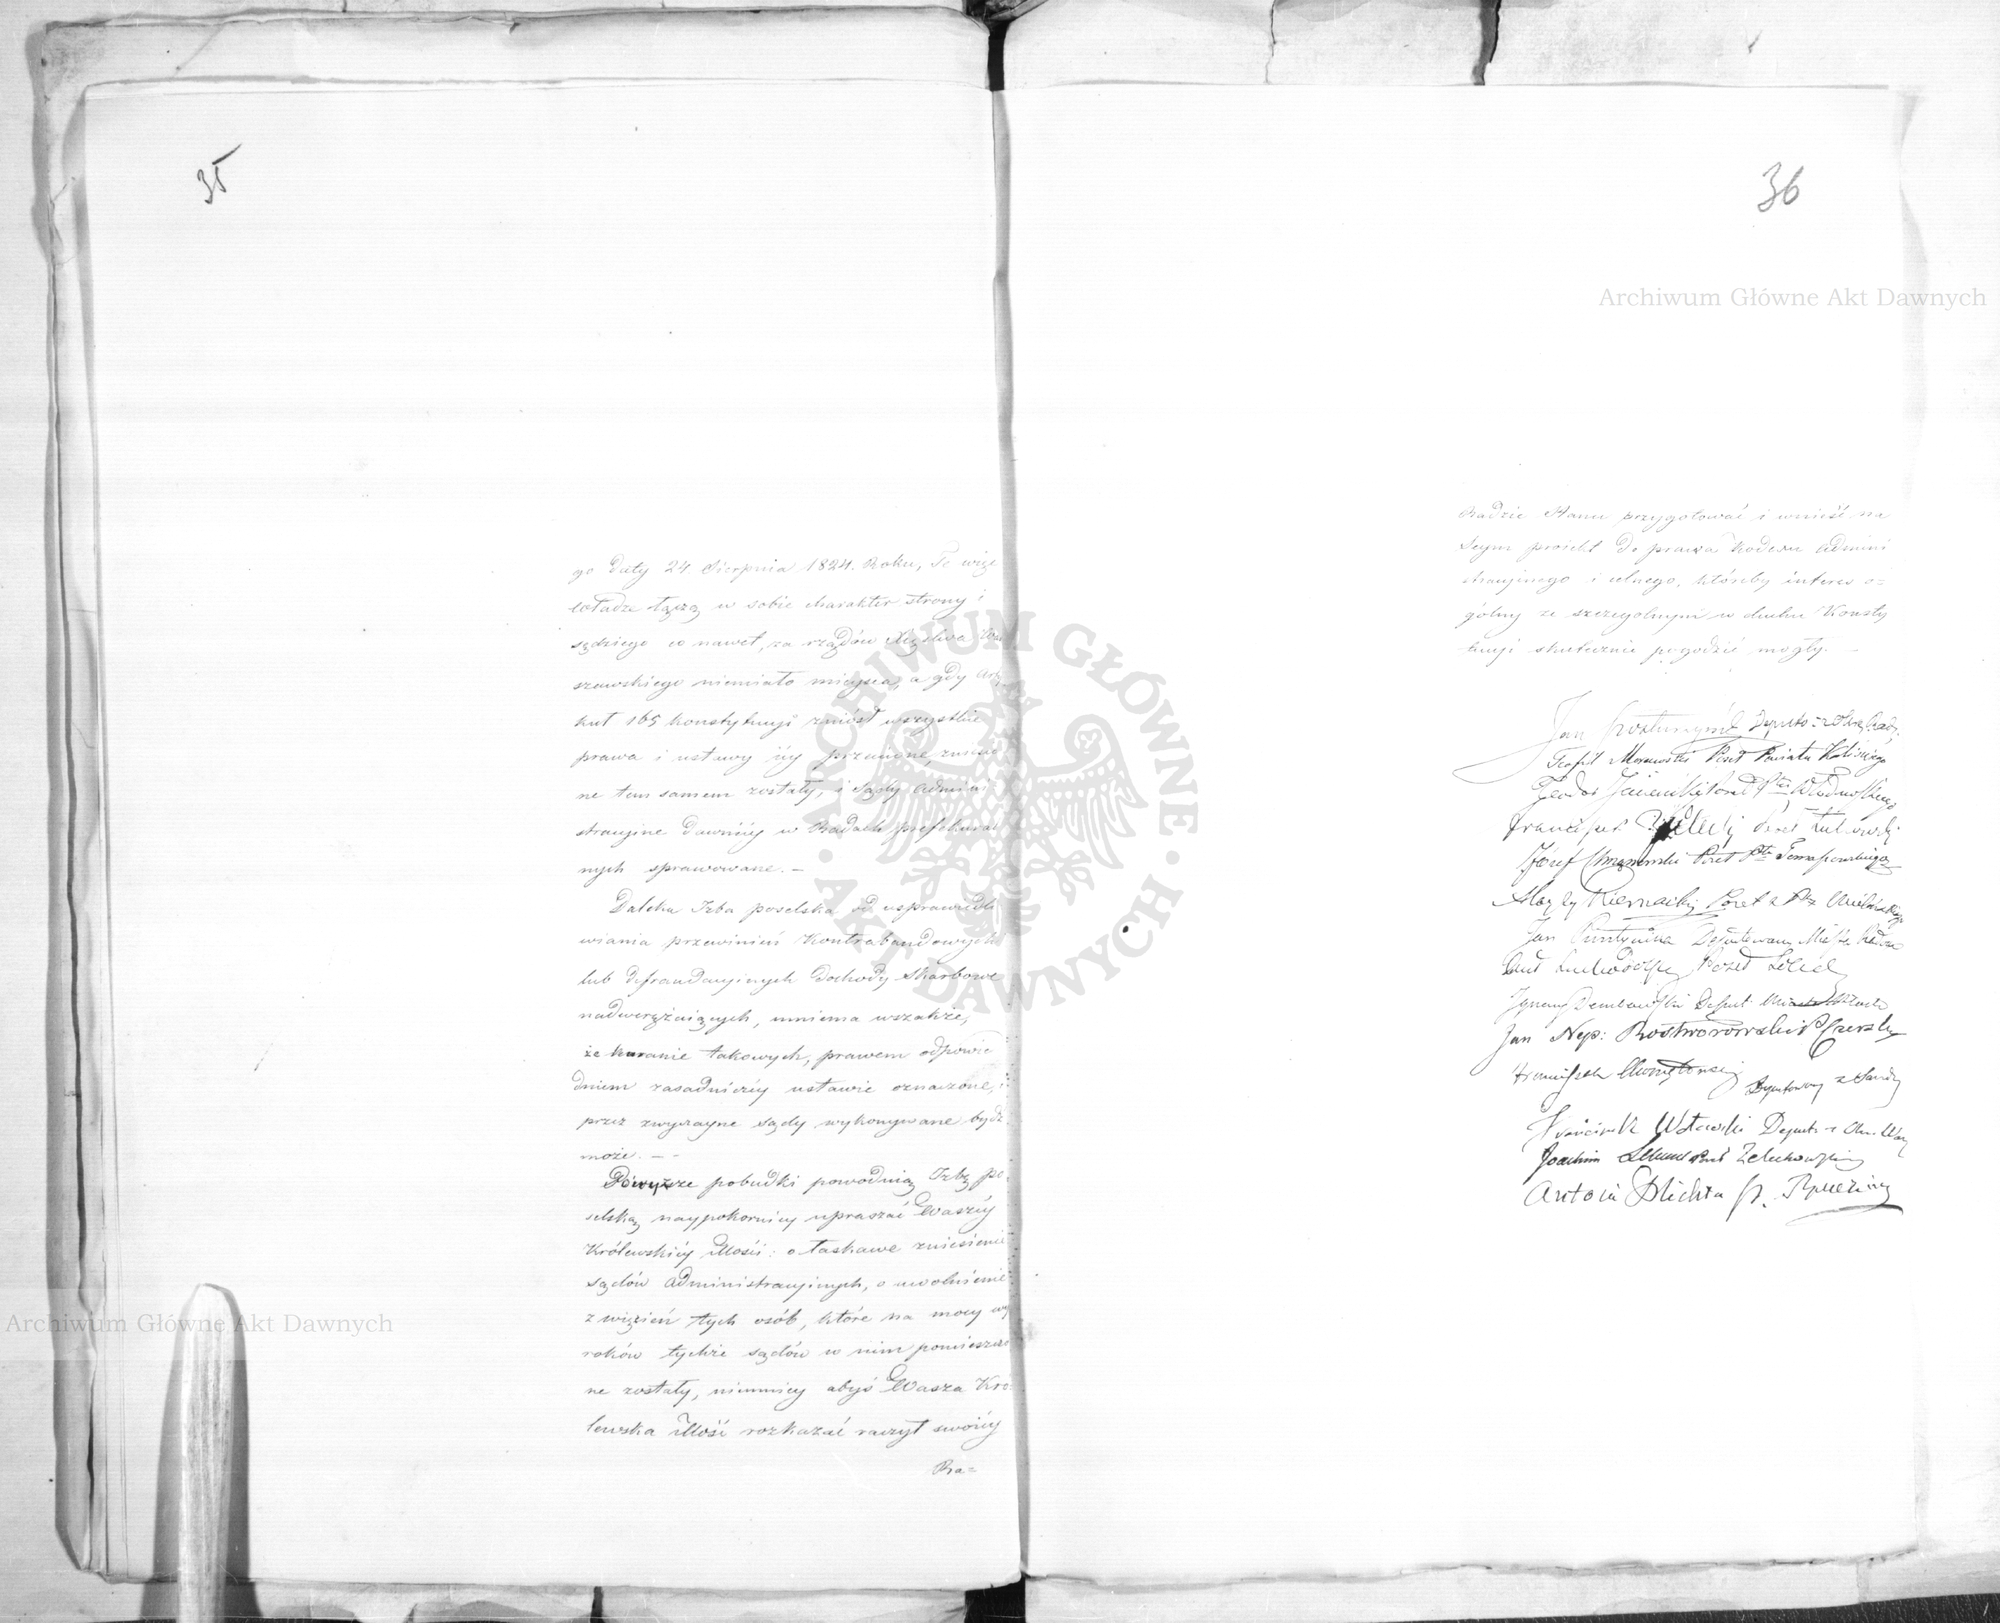 35
go daty 24 Sierpnia 1824. Roku, Te więc
władze łączą w sobie charakter strony i
sędziego co nawet, za rządów Xięstwa War
szawskiego niemiało mieysca, a gdy Arty
kuł 165 konstytucyi zniósł wszystkie
prawa i ustawy iéy przeciwne, zniesio
ne tem samem zostały, i Sądy Admini
stracyine dawniéy w Radach prefektural
nych sprawowane. —
Daleka Izba poselska od usprawiedli
wiania przewinień Kontrabandowych
lub defraudacyinych dochody skarbowe
nadwerężaiących, mniema wszakże,
że karanie takowych, prawem odpowie
dniem zasadniczéy ustawie oznaczone,
przez zwyczayne sądy wykonywane bydź
może. — -
Powyższe pobudki powodnią Izbę po
selską naypokorniey upraszać Waszéy
Królewskiéy Mości: o łaskawe zniesienie
sądów Administracyinych, o uwolnienie
z więzień tych osób, które na mocy wy
roków tychże sądów w nim pomieszczo
ne zostały, niemniey abyś Wasza Kró-
lewska Mość rozkazać raczył swoiéy
Ra=
36
Radzie Stanu przygotować i wnieść na
Seym proiekt do prawa Kodexu Admini
stracyinego i celnego, któreby interes o=
gólny ze szczególnym w duchu Konsty
tucyi skutecznie pogodzić mogły. —
Jan
Teofil Morawski Poseł Powiatu Kaliskiego
Teodor
Franciszek Poseł Łukowski
Józef Poseł Ptu
Biernacki Poseł z Ptu Wieluńskiego
Jan Deputowany
Poseł
Ignacy Dembowski Deput.
Jan Nep: Rostworowski P. Czerski
Franciszek
Deputowany z
Wincenty
Joachim Poseł Żelechowski
Antoni Plichta P.
Archiwum Główne Akt Dawnych
Archiwum Główne Akt Dawnych
ARCHIWUM GŁÓWNE
AKT DAWNYCH